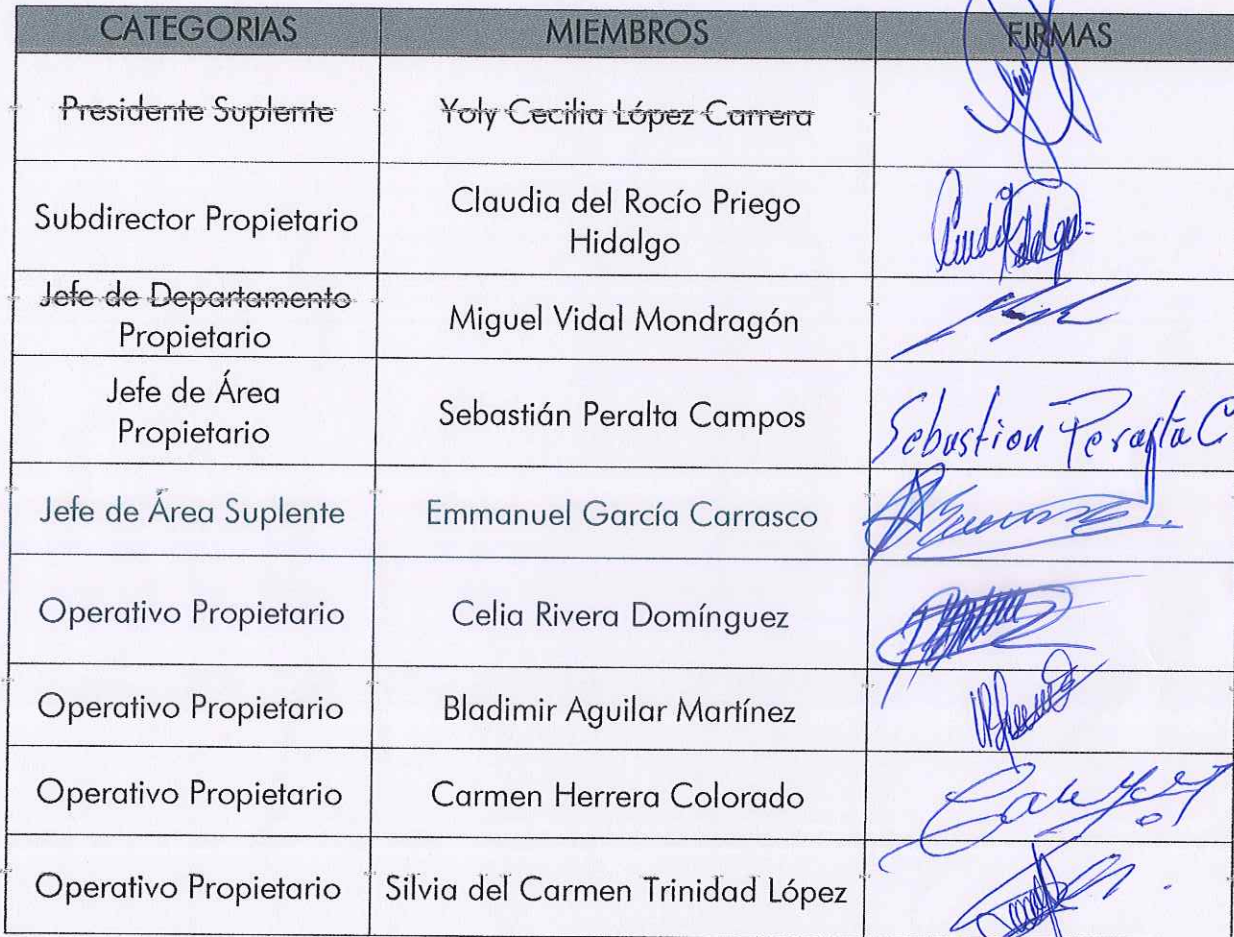 CATEGORIAS MIEMBROS FIRMAS
Presidente Suplente Yoly Cecilia López Carrera
Subdirector Propietario Claudia del Rocío Priego
Hidalgo
Jefe de Departamento
Propietario Miguel Vidal Mondragón
Jefe de Área
Propietario Sebastián Peralta Campos Sebastion Peralta C
Jefe de Área Suplente Emmanuel García Carrasco
Operativo Propietario Celia Rivera Domínguez
Operativo Propietario Bladimir Aguilar Martínez
Operativo Propietario Carmen Herrera Colorado
Operativo Propietario Silvia del Carmen Trinidad López